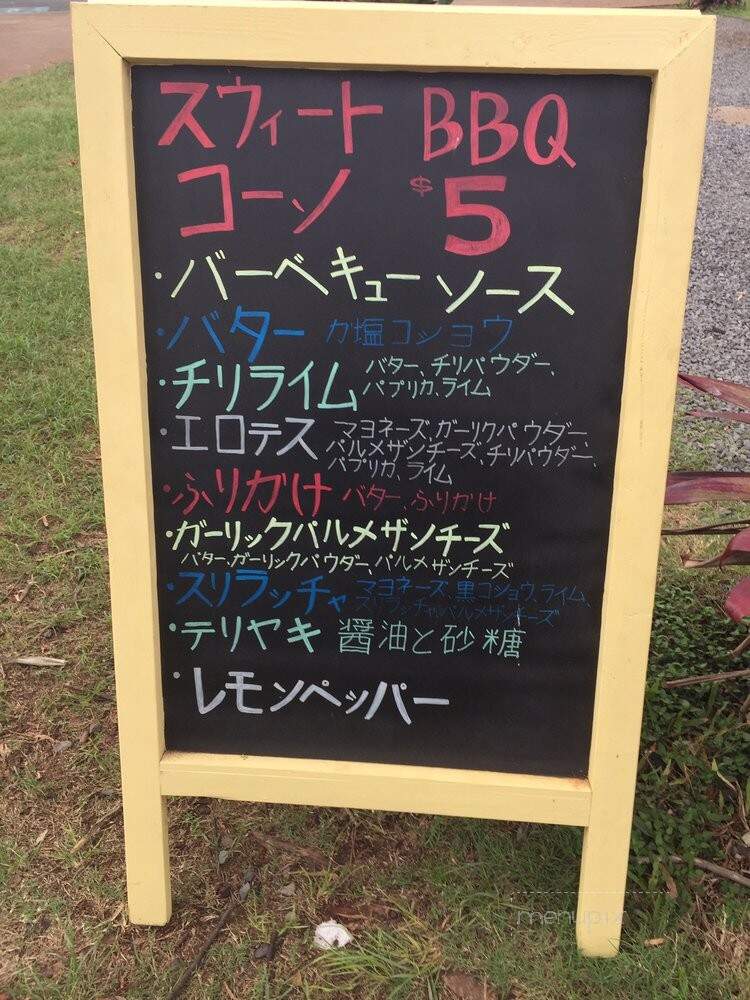 スウィート BBQ
コーン $5
・バーベキュー ソース
・バター か塩コショウ
・チリライム バター、チリパウダー、
パプリカ、ライム
・エロテス マヨネーズ、ガーリックパウダー、
パルメザンチーズ、チリパウダー、
パプリカ、ライム
・ふりかけ バター、ふりかけ
・ガーリックパルメザンチーズ
バター、ガーリックパウダー、パルメザンチーズ
・スリラッチャ マヨネーズ、黒コショウ、ライム、
スリラッチャ、パルメザンチーズ
・テリヤキ 醤油と砂糖
・レモンペッパー
menupix